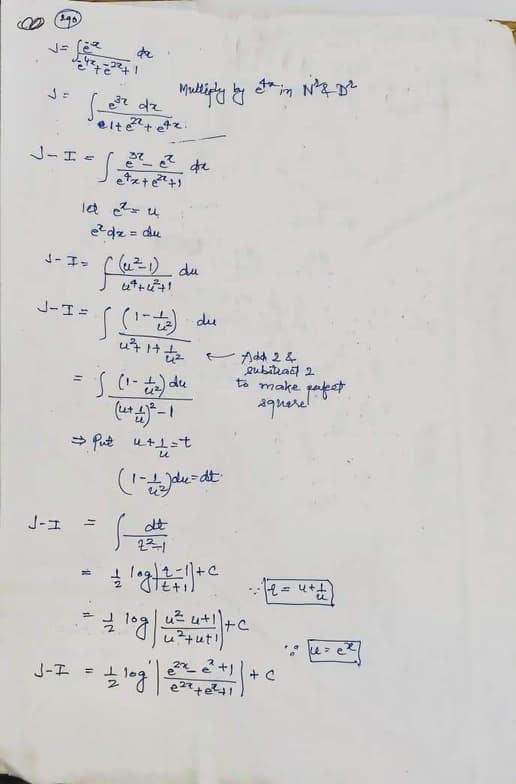 290
J = ∫ e^-x / (e^-4x + e^-2x + 1) dx
Multiply by e^4x in N^r & D^r
J = ∫ e^3x dx / (1 + e^2x + e^4x)
J - I = ∫ (e^3x - e^x) / (e^4x + e^2x + 1) dx
let e^x = u
e^x dx = du
J - I = ∫ (u^2 - 1) / (u^4 + u^2 + 1) du
J - I = ∫ (1 - 1/u^2) / (u^2 + 1 + 1/u^2) du
← Add 2 &
subtract 2
to make perfect
square
= ∫ (1 - 1/u^2) du / ((u + 1/u)^2 - 1)
⇒ Put u + 1/u = t
(1 - 1/u^2) du = dt
J - I = ∫ dt / (t^2 - 1)
= 1/2 log |(t - 1)/(t + 1)| + C ∵ t = u + 1/u
= 1/2 log |(u^2 - u + 1)/(u^2 + u + 1)| + C
∵ u = e^x
J - I = 1/2 log |(e^2x - e^x + 1)/(e^2x + e^x + 1)| + C